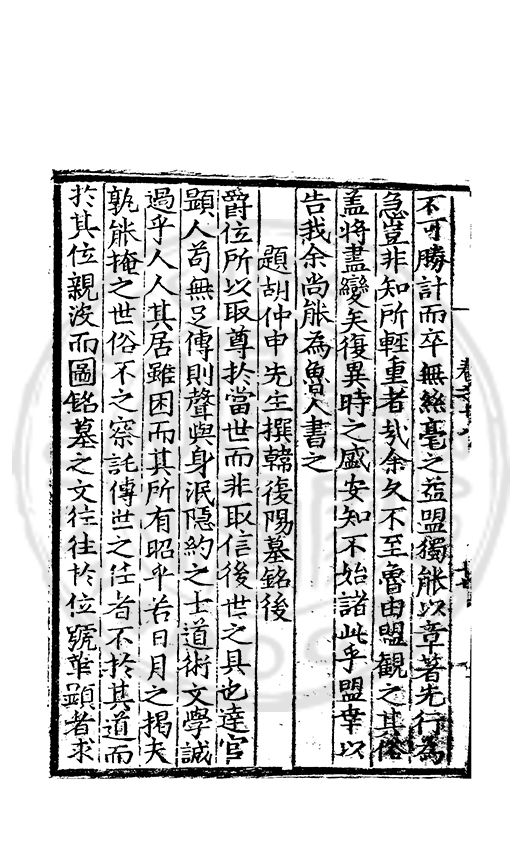 不可勝計而卒無絲毫之益盟獨能以章著先行為
急豈非知所輕重者㢤余久不至魯由盟觀之其俗
盖將盡變矣復異時之盛安知不始諸此乎盟幸以
告我余尚能為魯人書之
題胡仲申先生撰韓復陽墓銘後
爵位所以取尊扵當世而非取信後世之具也達官
顯人苟無足傳則聲與身泯隱約之士道術文學誠
過乎人人其居雖困而其所有昭乎若日月之揭夫
孰能掩之世俗不之察託傳世之任者不扵其道而
扵其位親波而圖銘墓之文徃徃扵位號華顯者求